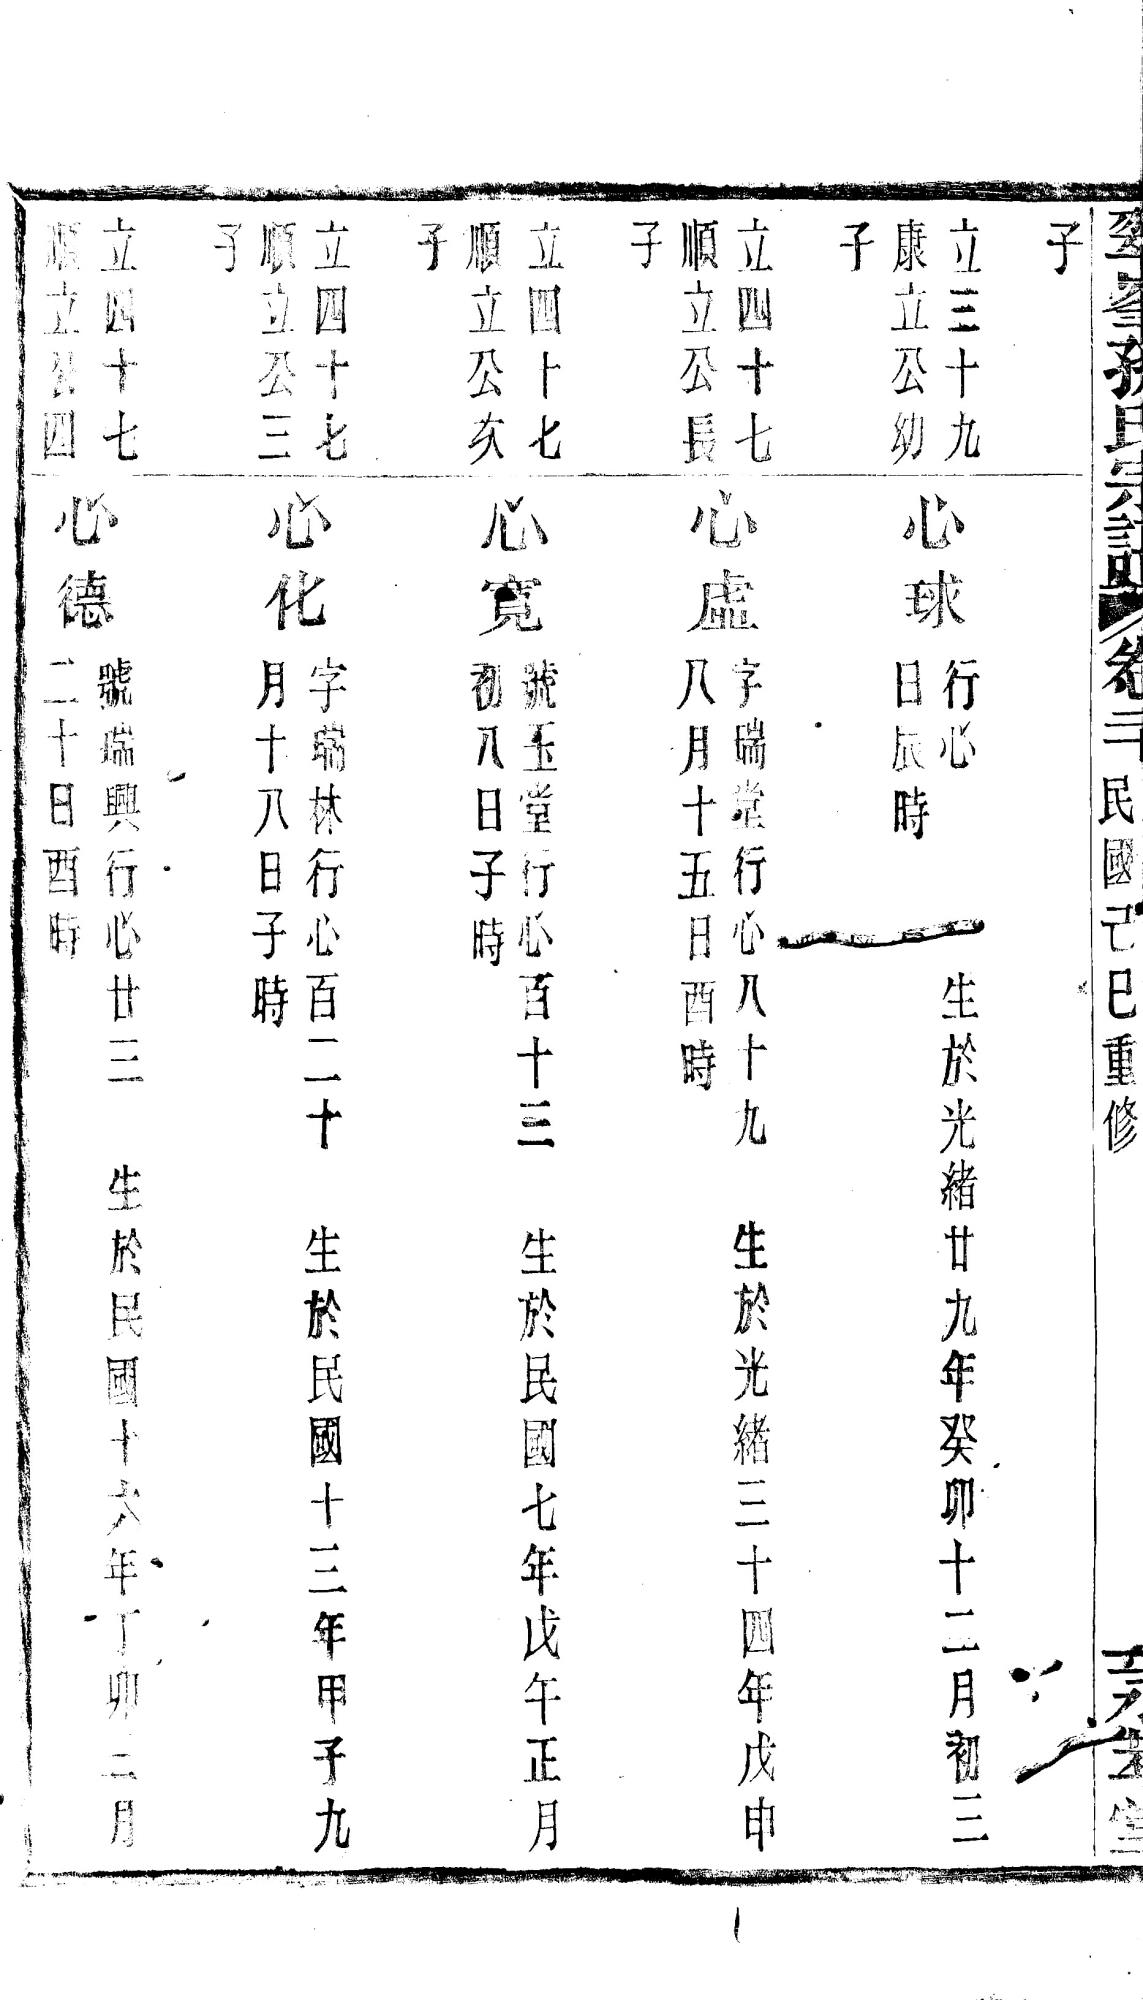 氏宗譜 卷二 民國己巳重修
子
立三十九
康立公幼
子
心球
行心
生於光緒廿九年癸卯十二月初三
日辰時
立四十七
順立公長
子
心虛
字瑞堂行心八十九
生於光緒三十四年戊申
八月十五日酉時
立四十七
順立公次
子
心寬
號玉堂行心百十三
生於民國七年戊午正月
初八日子時
立四十七
順立公三
子
心化
字瑞林行心百二十
生於民國十三年甲子九
月十八日子時
立四十七
順立公四
心德
號瑞興行心廿三
生於民國十六年丁卯二月
二十日酉時